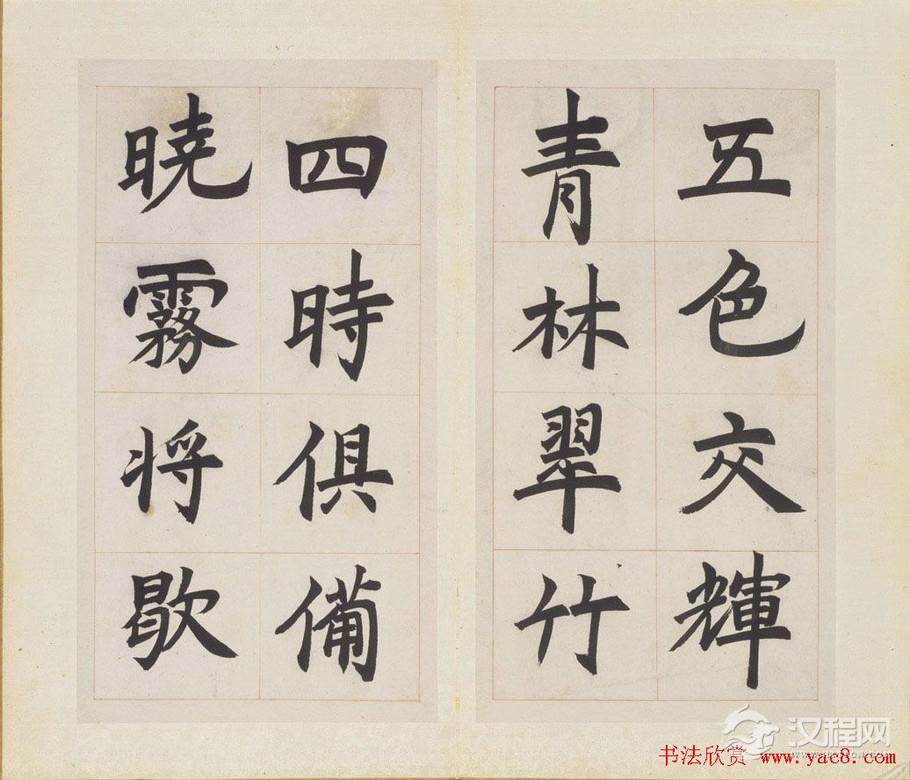 五色交輝
青林翠竹
四時俱備
暁霧将歇
汉程网
书法欣赏 www.yac8.com